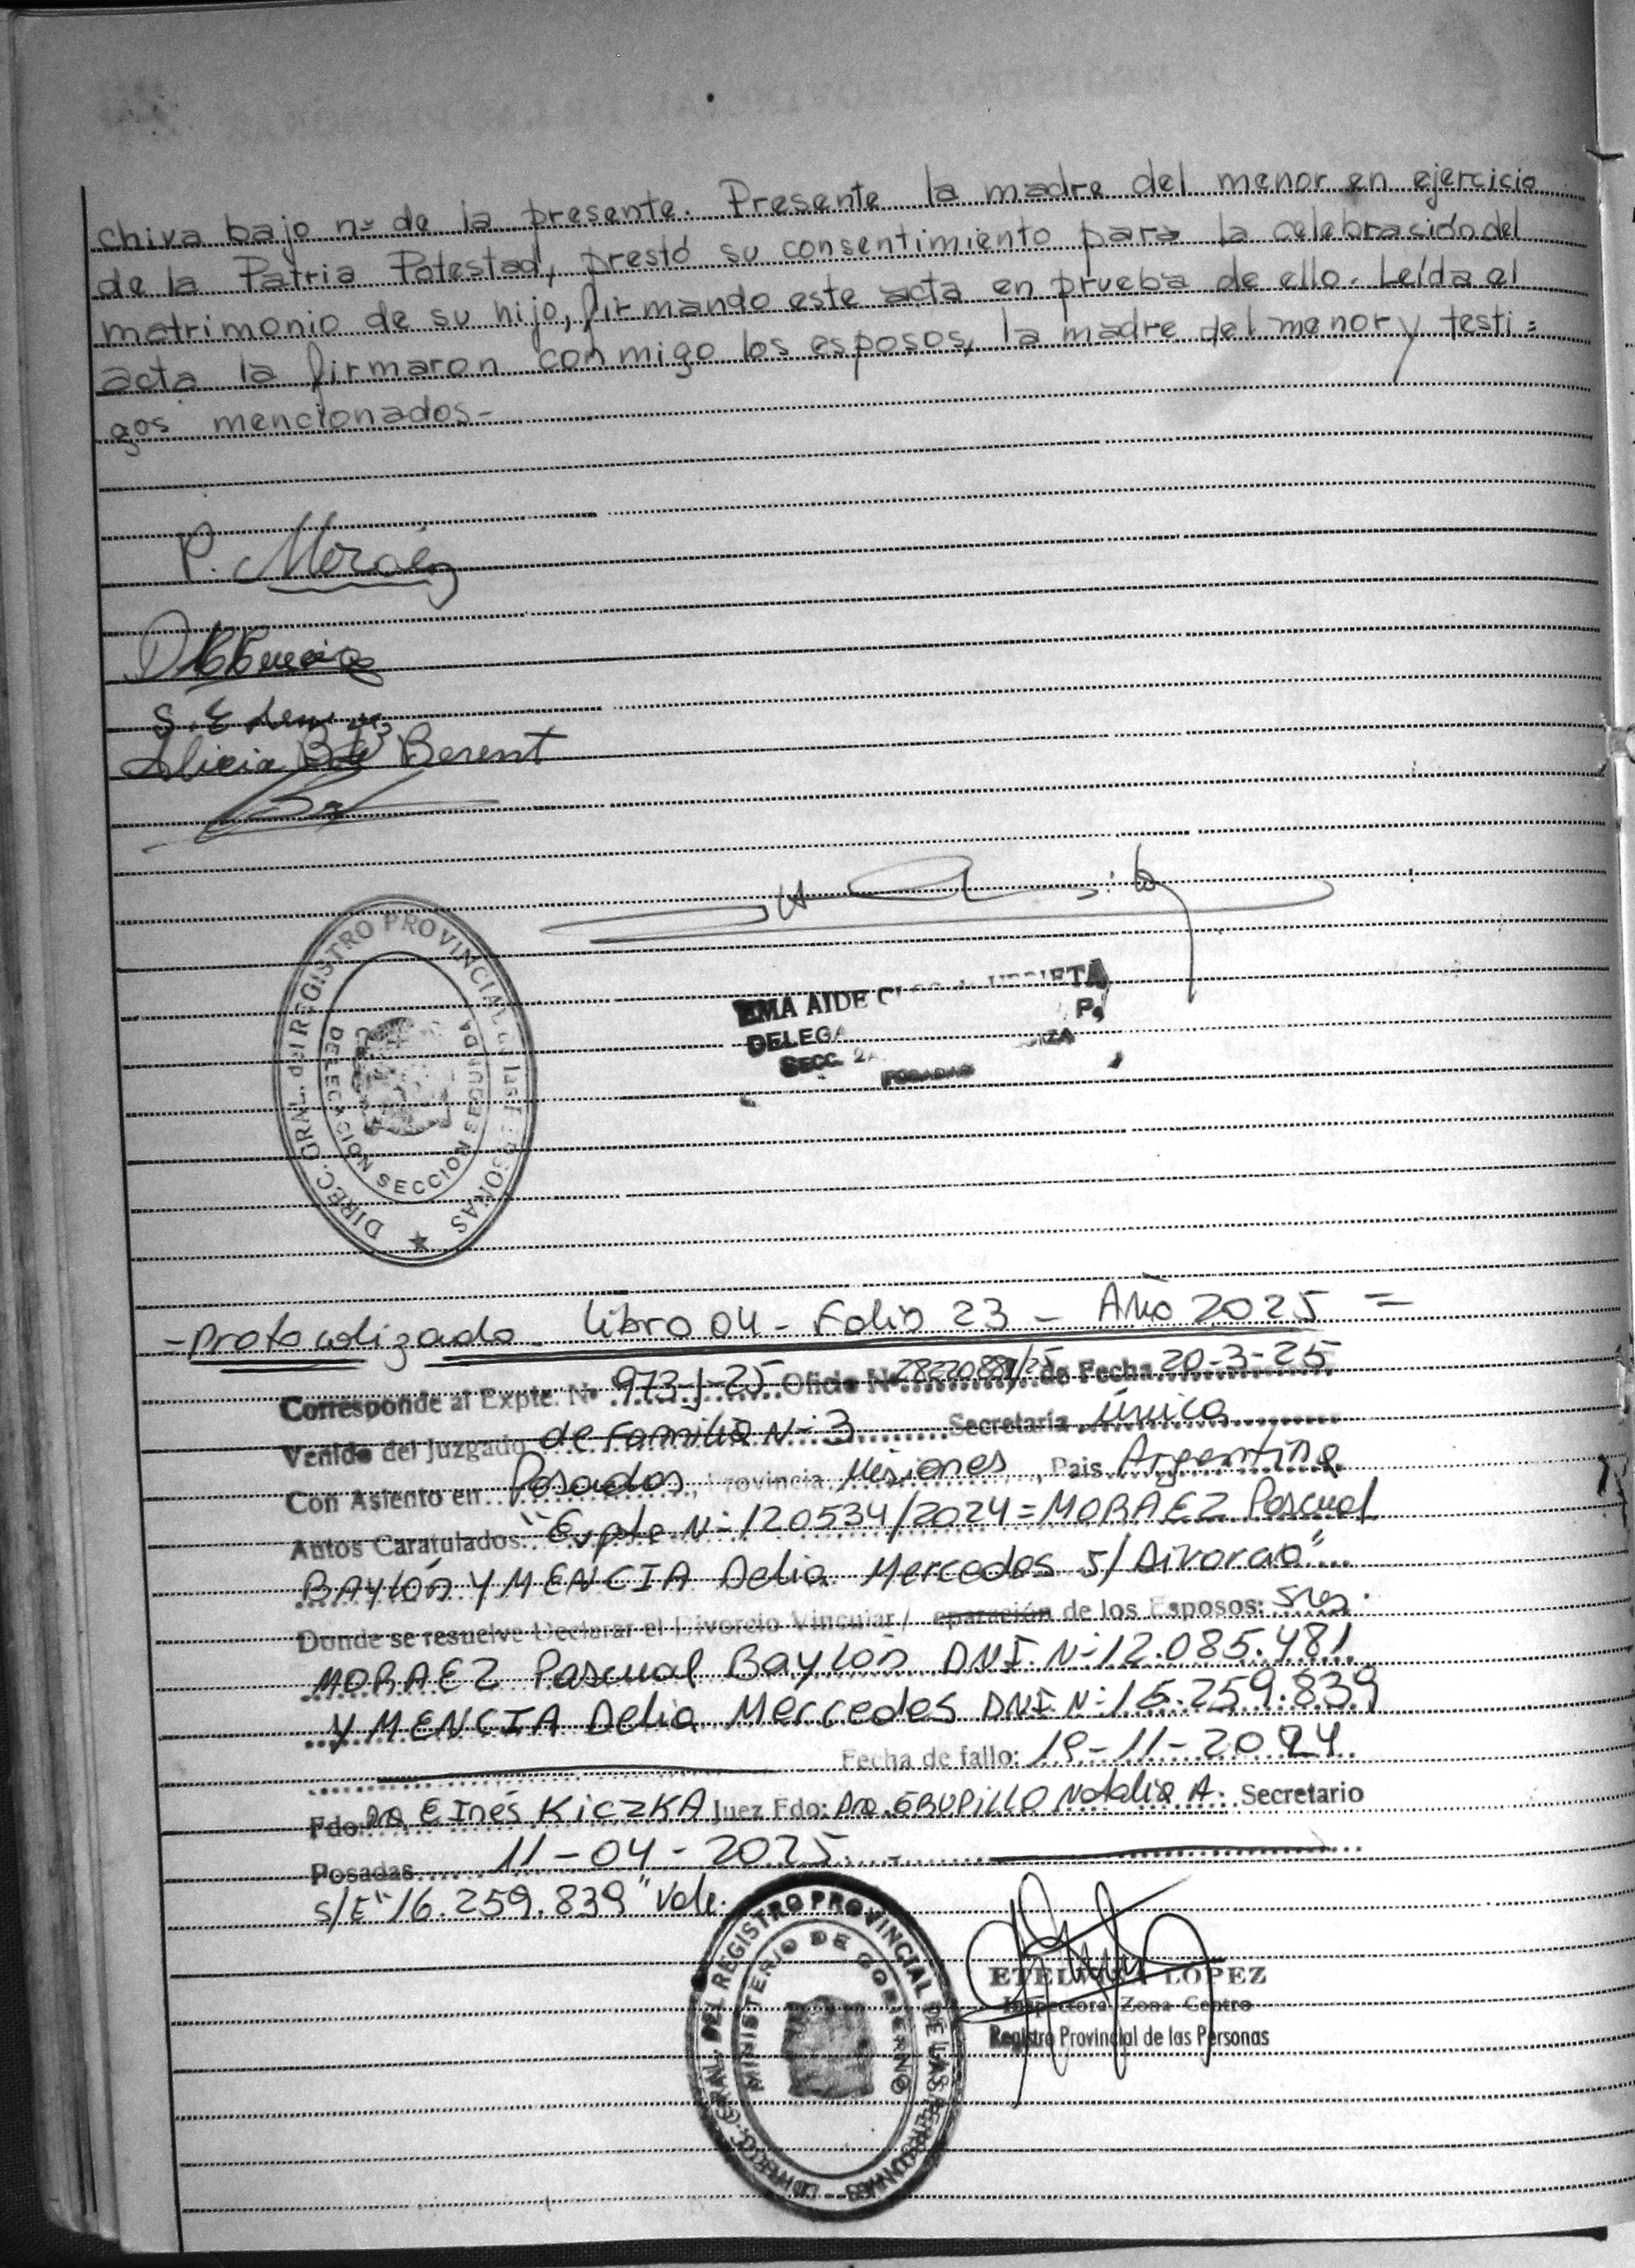 chiva bajo nº de la presente. Presente la madre del menor en ejercicio
de la Patria Potestad, prestó su consentimiento para la celebración del
matrimonio de su hijo, firmando este acta en prueba de ello. Leída el
acta la firmaron conmigo los esposos, la madre del menor y testi=
gos mencionados-
P. Moráez
Alicia B de Berent
DIREC. GRAL. del REGISTRO PROVINCIAL de las PERSONAS
DELEGACION SECCION SEGUNDA
EMA AIDE
DELEGA
SECC. 2A.
POSADAS
- Protocolizado - Libro 04 - Folio 23 - Año 2025 =
Corresponde al Expte. Nº 973-J-25 Oficio Nº de Fecha 20-3-25
Venido del Juzgado de Familia Nº 3 Secretaría única
Con Asiento en Posadas, Provincia Misiones, Pais Argentina
Autos Caratulados: "Expte Nº 120534/2024 = MORAEZ Pascual
BAYLÓN Y MENCIA Delia Mercedes s/ Divorcio"
Donde se resuelve Declarar el Divorcio Vincular / eparación de los Esposos: Sres.
MORAEZ Pascual Baylón DNI. Nº 12.085.481
Y MENCIA Delia Mercedes DNI Nº 16.259.839
Fecha de fallo: 19-11-2024
Fdo: Dra. E Inés KICZKA Juez Fdo: Dra. Natalia A. Secretario
Posadas 11-04-2025
s/E "16.259.839" Vale.
DIRECC. GRAL. DEL REGISTRO PROVINCIAL DE LAS PERSONAS
MINISTERIO DE GOBIERNO
ETELVINA LOPEZ
Inspectora Zona Centro
Registro Provincial de las Personas